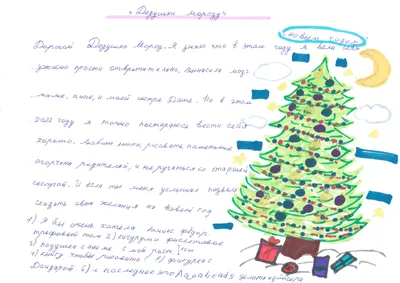 „Дедушки морозу“
с новым годом!
Дорогой Дедушка Мороз. Я знаю что в этом году я вела себя
ужасно просто отвратительно, выносила мозг
маме, папе, и моей сестре Даше. Но в этом
2022 году я точно постараюсь вести себя
хорошо. читать книги, рисовать поменьше
огорчать родителей, и не ругаться со старшей
сестрой. И если ты меня услышал позволь
сказать свои желания на новый год
1) Я бы очень хотела комикс фёдор
трефовый том 2) кигуруми фиолетовое
3) подушки с аниме с мей раст том
4) книгу чтобы рисовать! 5) фигурка
Дайдары 6) и последнее это Aquabeads